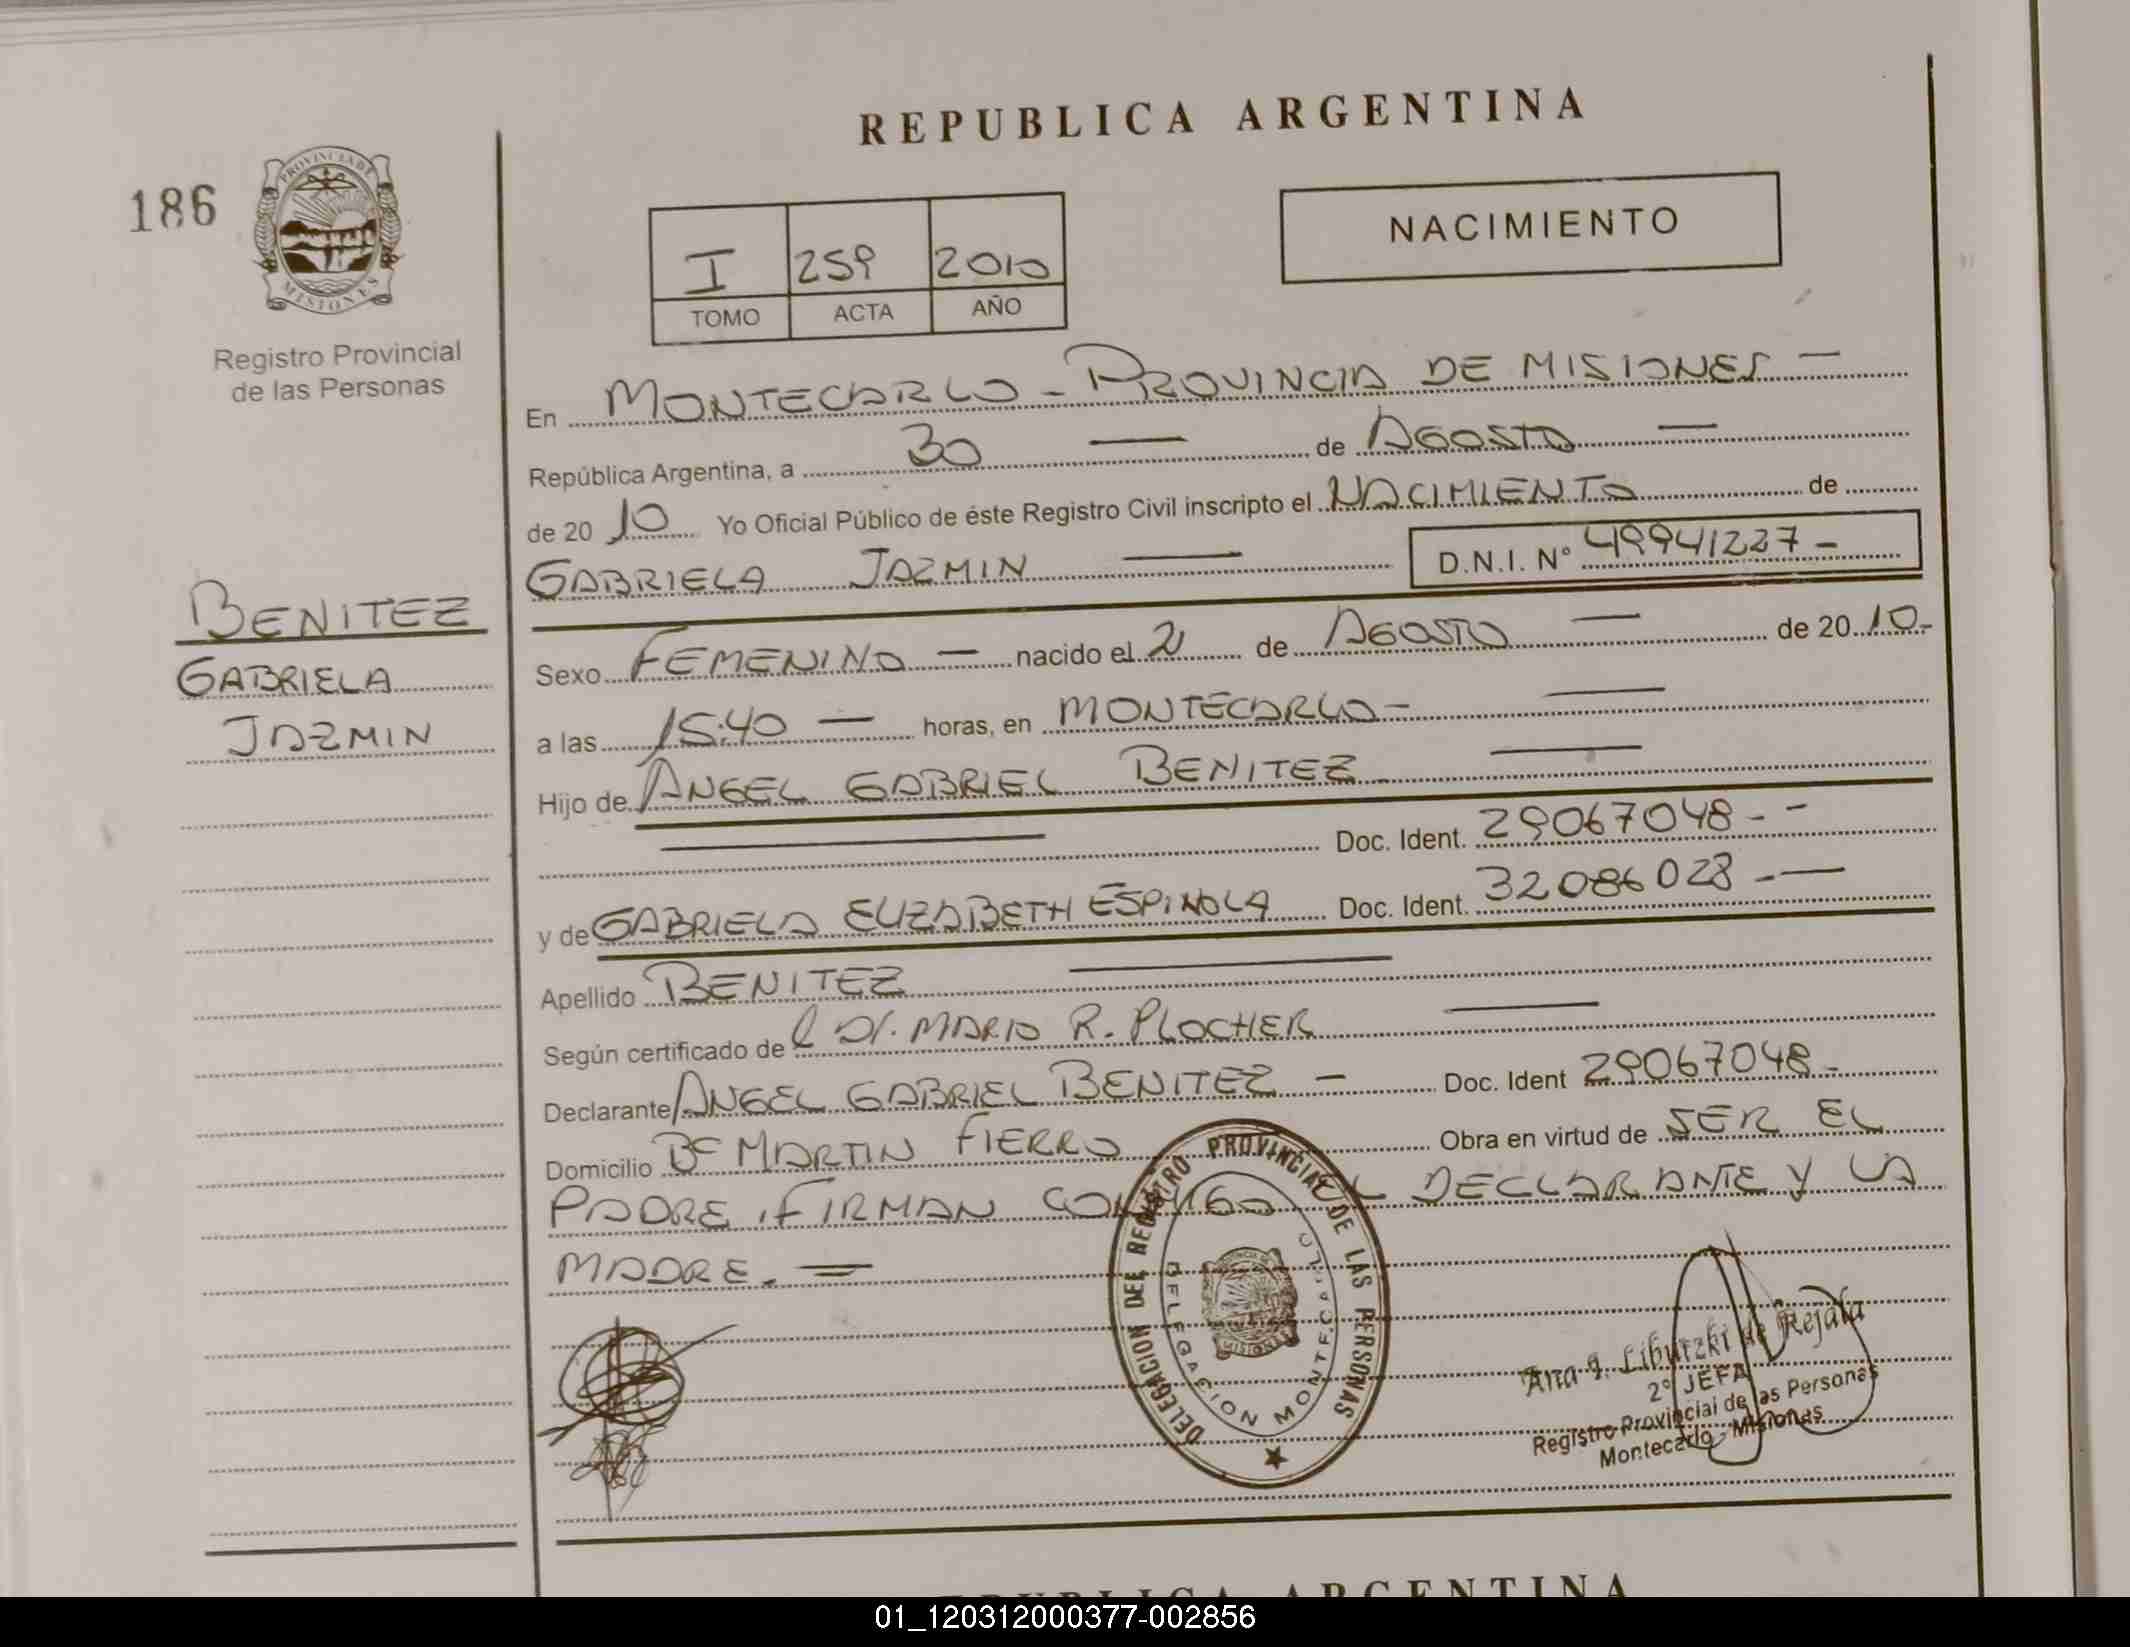 REPUBLICA ARGENTINA
186
PROVINCIA DE
MISIONES
Registro Provincial
de las Personas
NACIMIENTO
I 259 2010
TOMO ACTA AÑO
En MONTECARLO - PROVINCIA DE MISIONES —
República Argentina, a 30 — de AGOSTO —
de 20 10 Yo Oficial Público de éste Registro Civil inscripto el NACIMIENTO de
GABRIELA JAZMIN — D.N.I. N° 49941227 -
BENITEZ
GABRIELA
JAZMIN
Sexo FEMENINO — nacido el 21 de AGOSTO — de 20 10-
a las 15:40 — horas, en MONTECARLO- —
Hijo de ANGEL GABRIEL BENITEZ —
— Doc. Ident. 29067048 - -
y de GABRIELA ELIZABETH ESPINOLA Doc. Ident. 32086028 - —
Apellido BENITEZ —
Según certificado de Dr. MARIO R. PLOCHER —
Declarante ANGEL GABRIEL BENITEZ — Doc. Ident 29067048-
Domicilio Bº MARTIN FIERRO Obra en virtud de SER EL
PADRE, FIRMAN CONMIGO EL DECLARANTE Y LA
MADRE. =
DELEGACION DEL REGISTRO PROVINCIAL DE LAS PERSONAS
DELEGACION MONTECARLO
MISIONES
Ana I. Libutzki de Rejala
2º JEFA
Registro Provincial de las Personas
Montecarlo - Misiones
REPUBLICA ARGENTINA
01_120312000377-002856